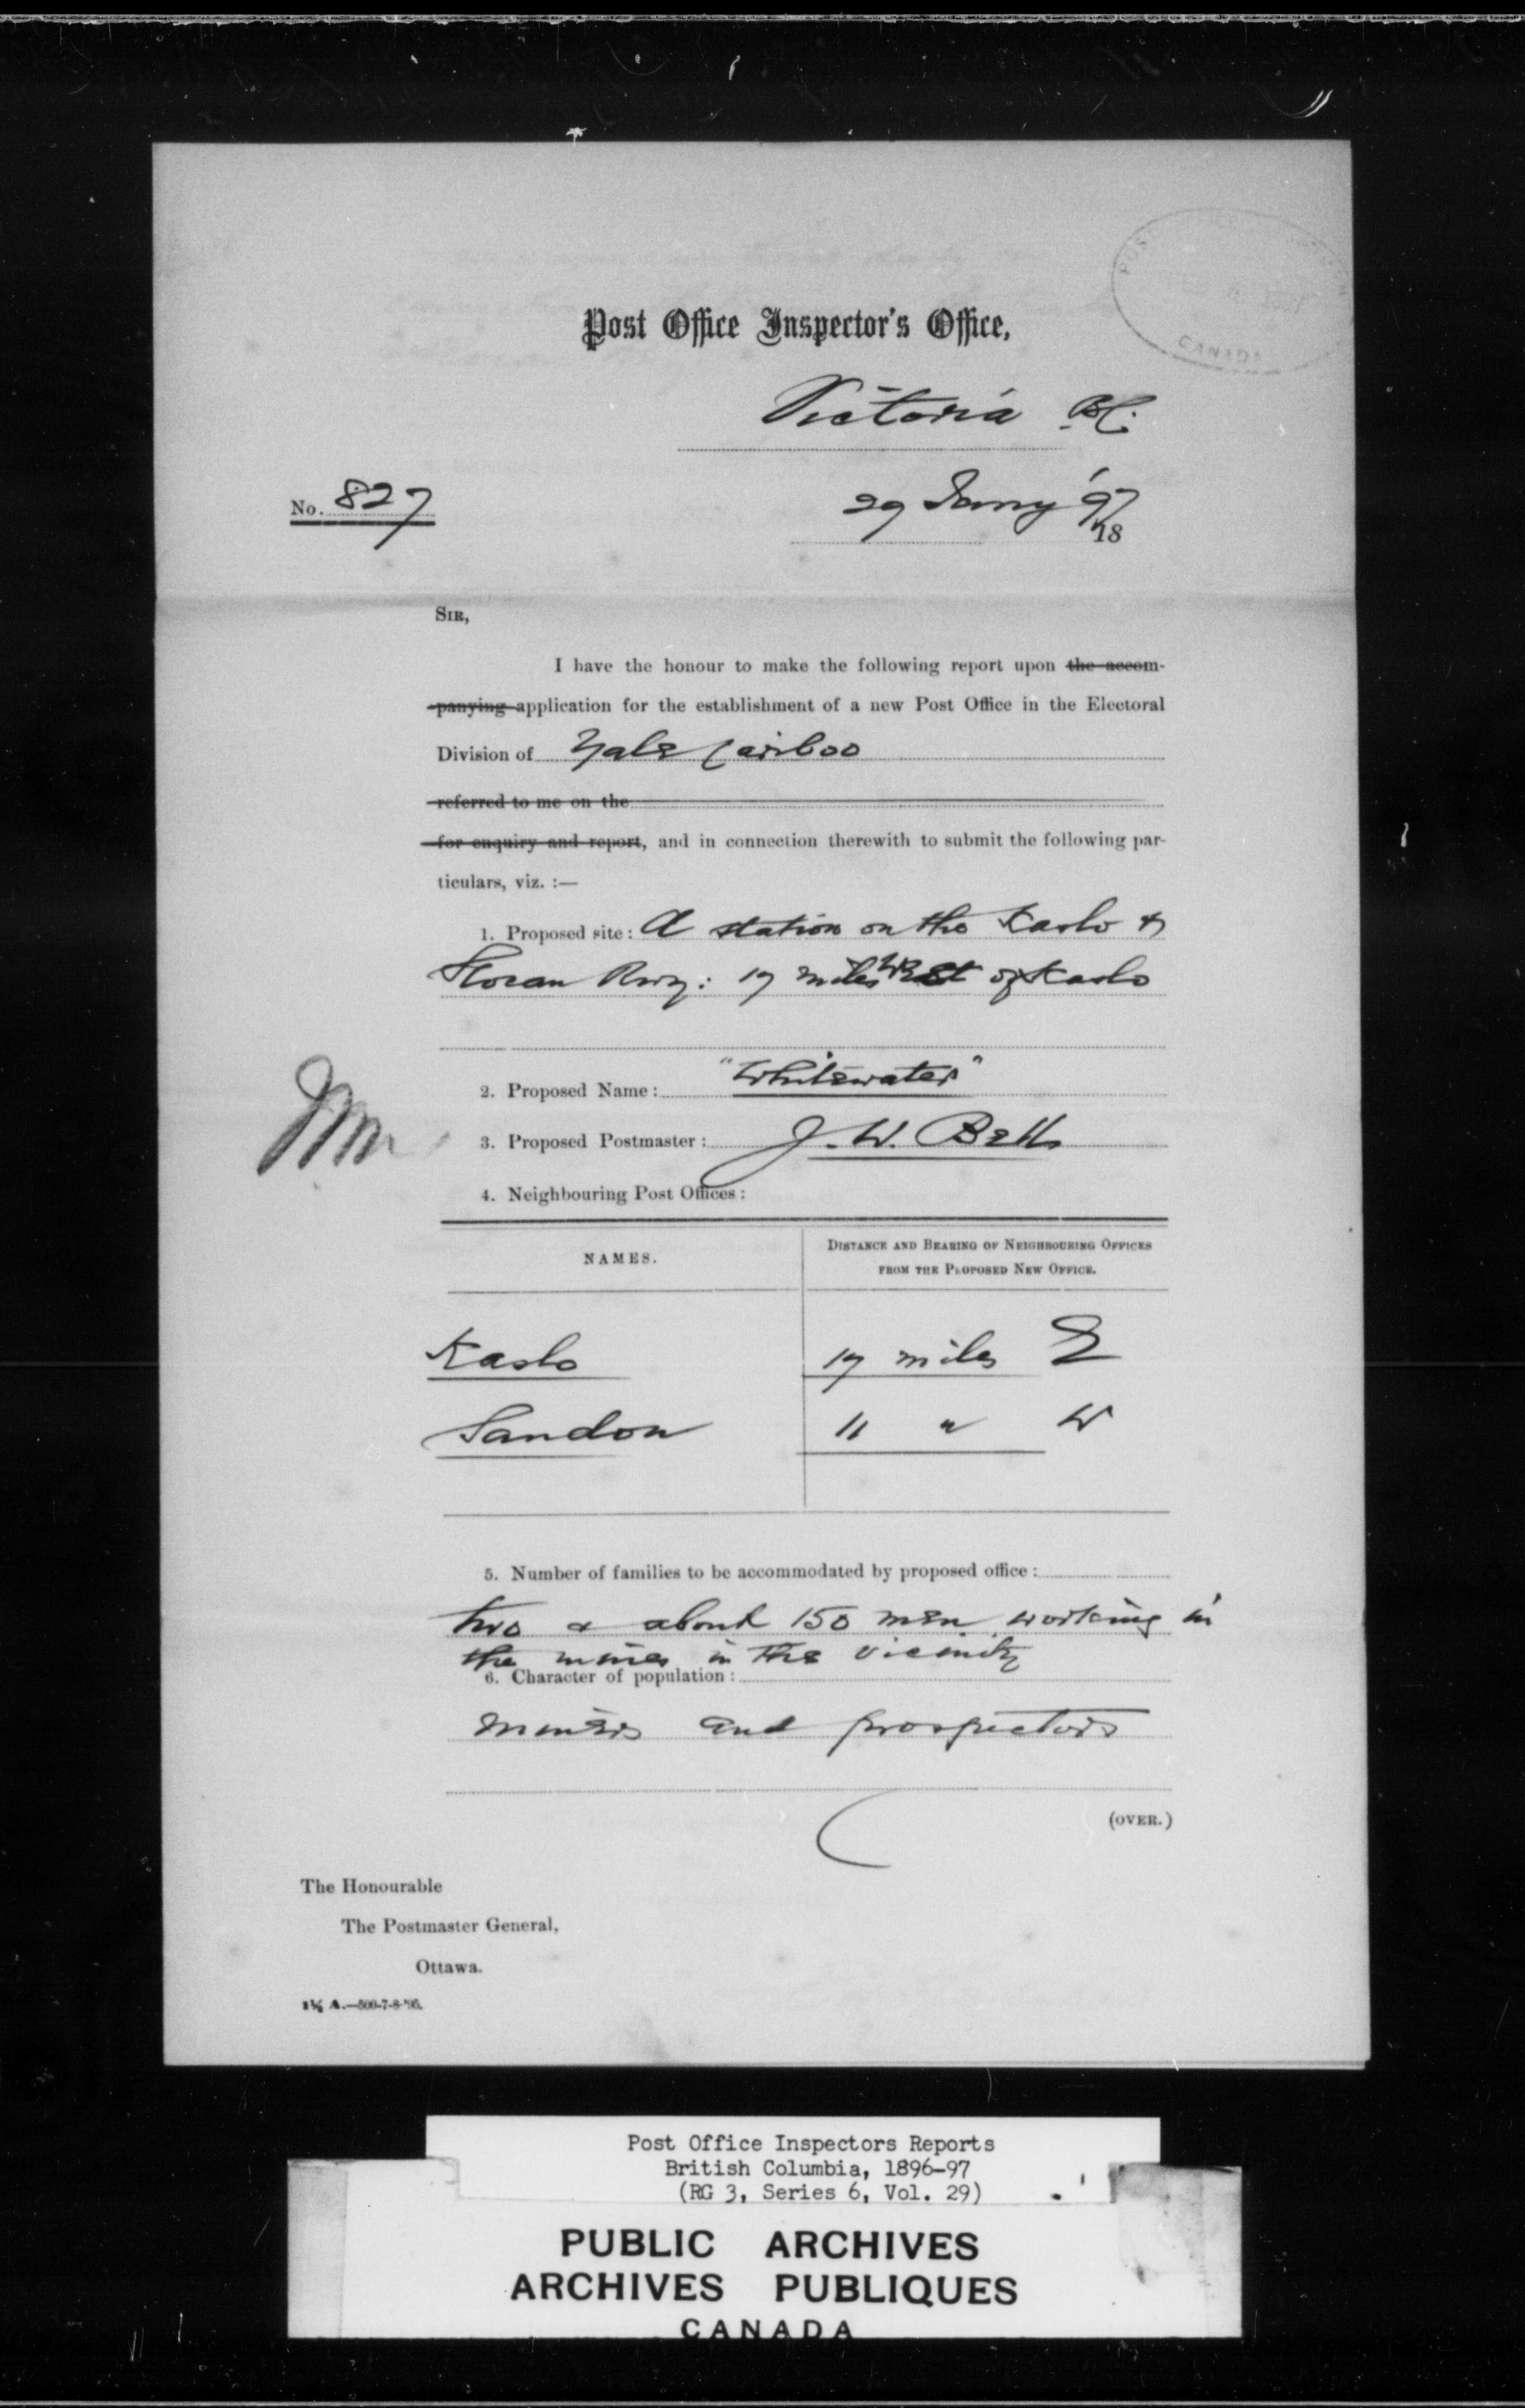 POS
1897
CANADA
Post Office Inspector's Office,
Victoria BC.
No. 827
29 Jany '97
18
SIR,
I have the honour to make the following report upon the accom-
panying application for the establishment of a new Post Office in the Electoral
Division of Yale Cariboo
referred to me on the
for enquiry and report, and in connection therewith to submit the following par-
ticulars, viz. :—
1. Proposed site: A station on the Kaslo &
Slocan Rwy: 17 miles West of Kaslo
2. Proposed Name: "Whitewater"
3. Proposed Postmaster: J. W. Bell
4. Neighbouring Post Offices:
NAMES.
DISTANCE AND BEARING OF NEIGHBOURING OFFICES
FROM THE PROPOSED NEW OFFICE.
Kaslo 17 miles E
Sandon 11 " W
5. Number of families to be accommodated by proposed office:
two & about 150 men working in
the mines in the vicinity
6. Character of population:
miners and prospectors
(OVER.)
The Honourable
The Postmaster General,
Ottawa.
1½ A.—500-7-8-'95.
Post Office Inspectors Reports
British Columbia, 1896-97
(RG 3, Series 6, Vol. 29)
PUBLIC ARCHIVES
ARCHIVES PUBLIQUES
CANADA